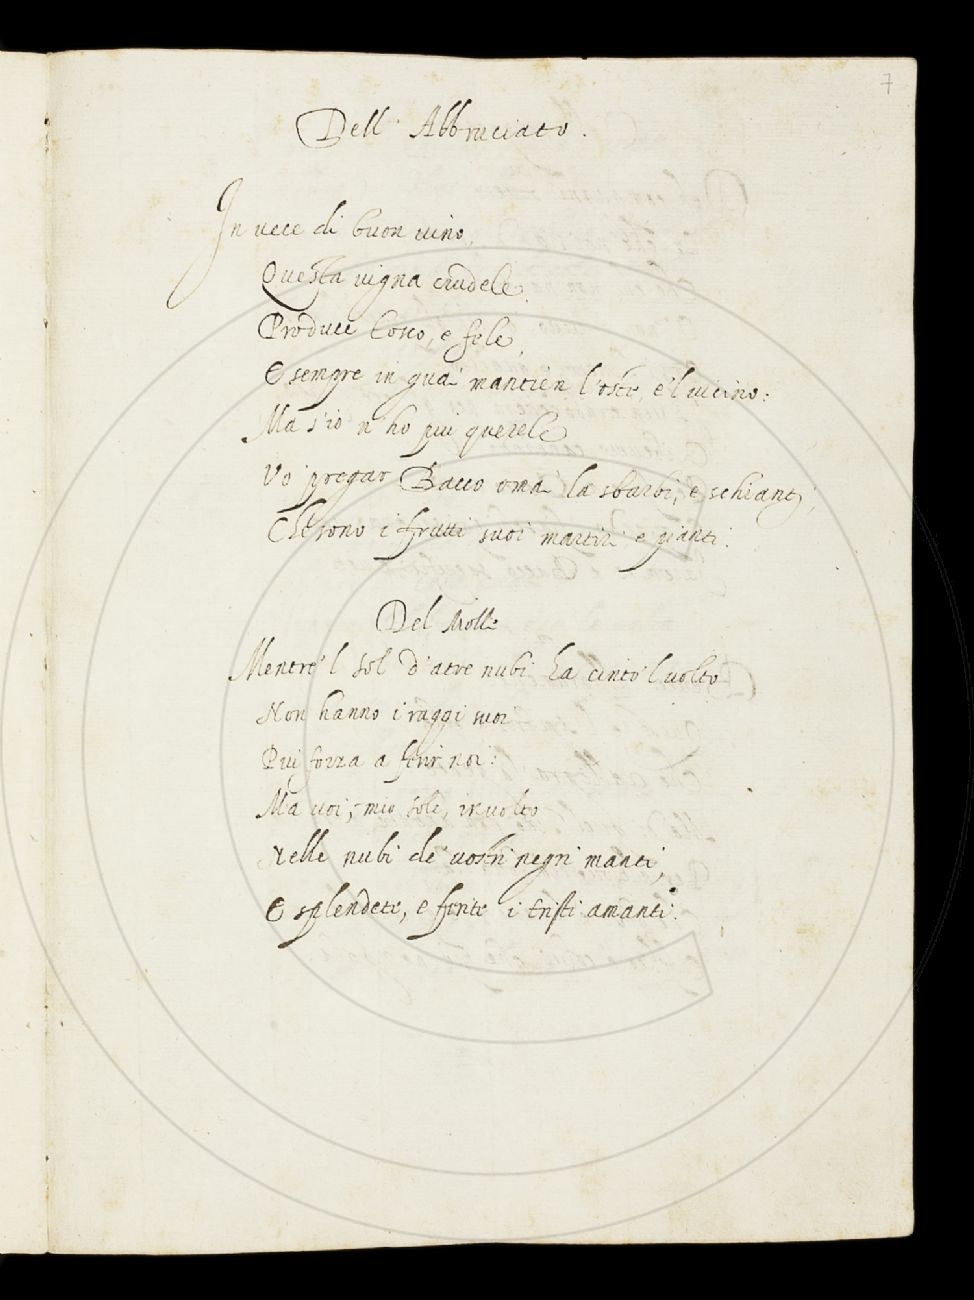 7
Dell' Abbruciato.
In uece di buon uino,
Questa uigna crudele
Produce tosco, e fele,
E sempre in guai mantien l'oste, e'l uicino:
Ma s'io n'ho piu querele
Vo' pregar Bacco omai la sbarbi, e schianti,
Che sono i frutti suoi martiri e pianti.
Del Molle
Mentre'l sol d'atre nubi ha cinto'l uolto
Non hanno i raggi suoi
Piu forza a ferir noi:
Ma uoi, mio sole, inuolto
Nelle nubi de' uostri negri manti,
E splendete, e ferite i tristi amanti.